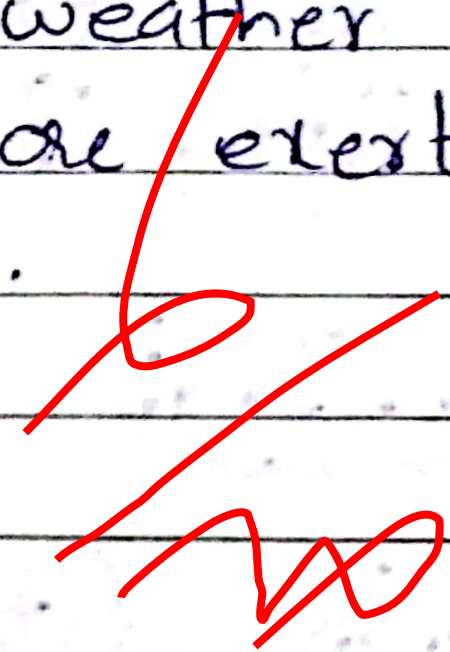 weather
are exert
.
6
/
20